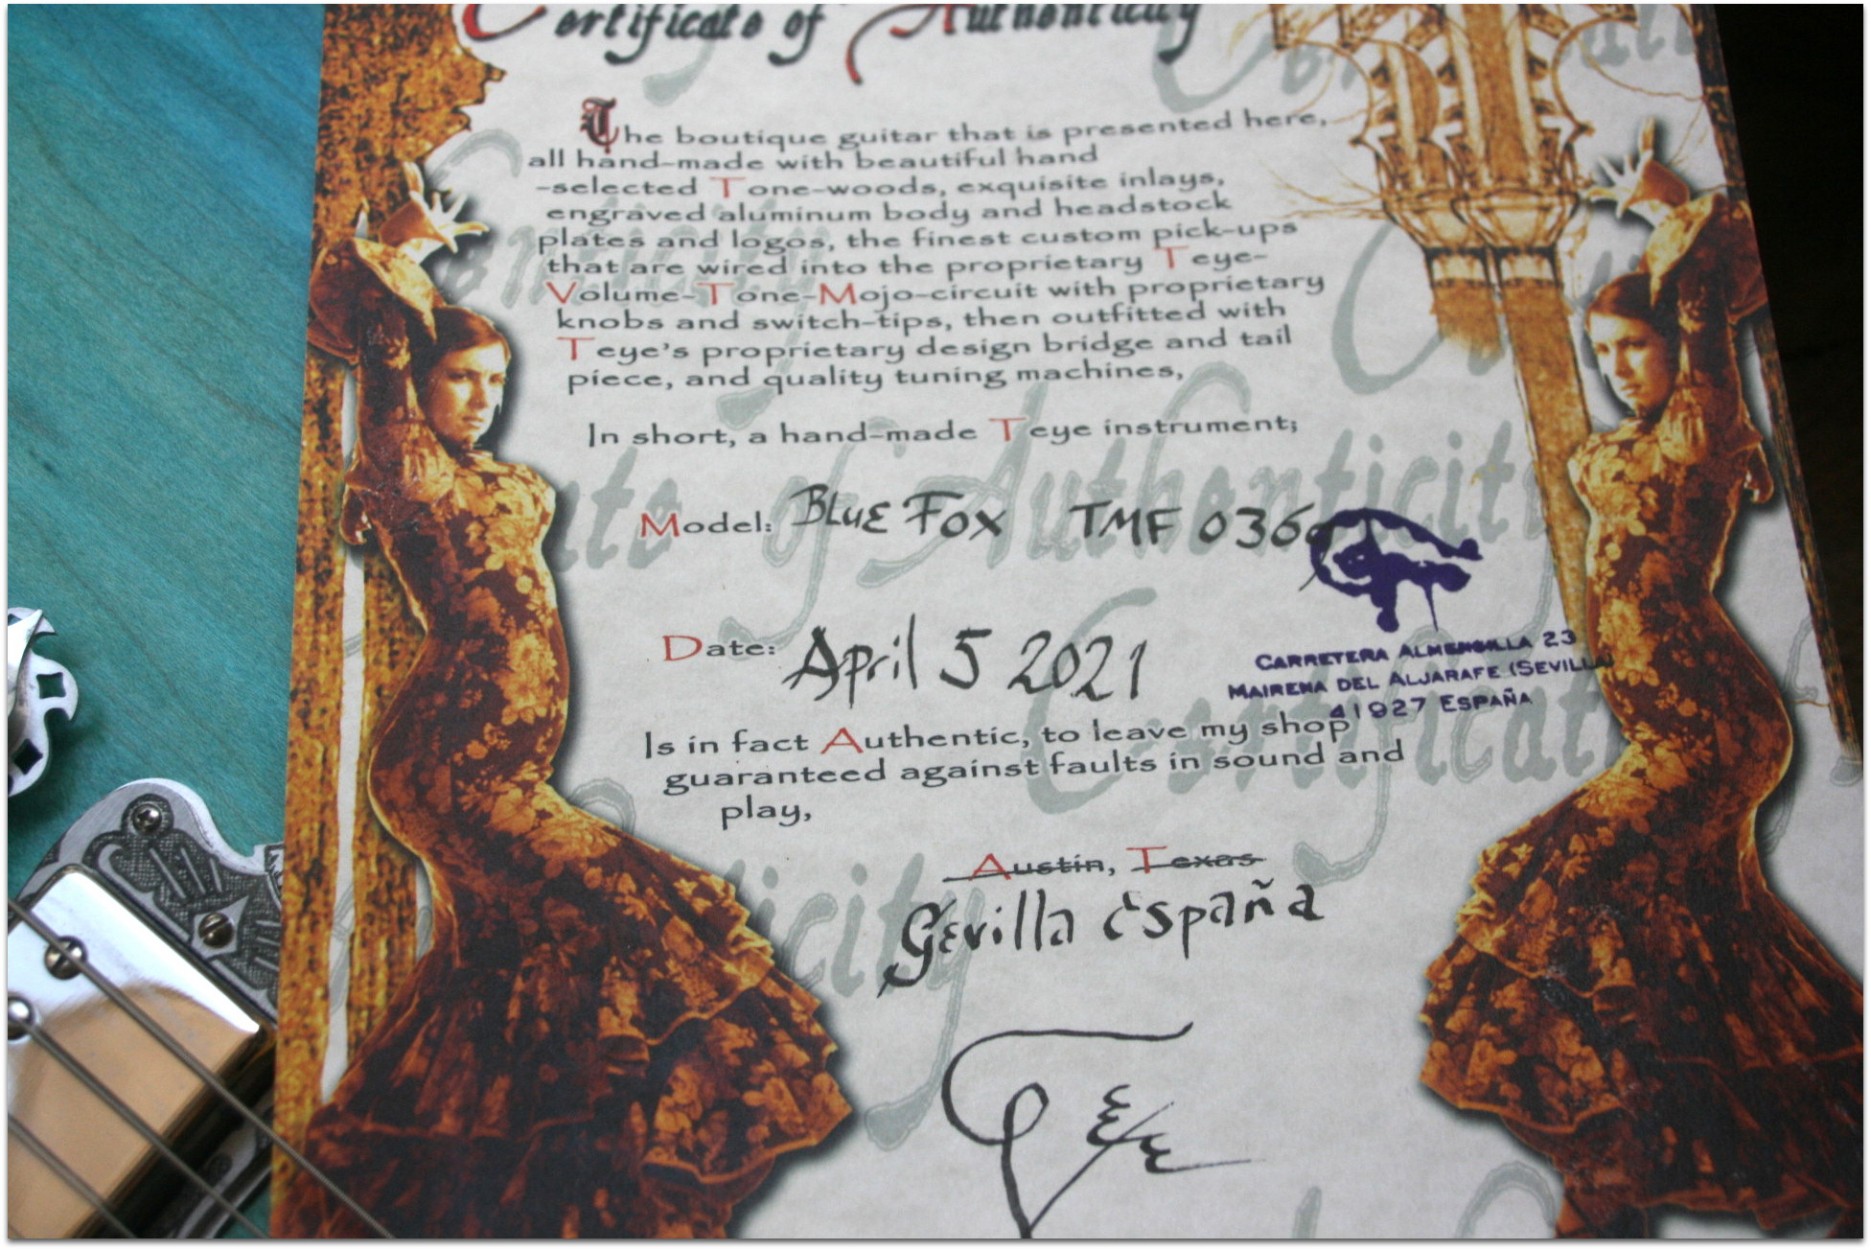 Certificate of Authenticity
The boutique guitar that is presented here,
all hand-made with beautiful hand
-selected Tone-woods, exquisite inlays,
engraved aluminum body and headstock
plates and logos, the finest custom pick-ups
that are wired into the proprietary Teye-
Volume-Tone-Mojo-circuit with proprietary
knobs and switch-tips, then outfitted with
Teye's proprietary design bridge and tail
piece, and quality tuning machines,
In short, a hand-made Teye instrument;
Model: BLUE FOX TMF 036
Date: April 5 2021
CARRETERA ALMENSILLA 23
MAIRENA DEL ALJARAFE (SEVILLA)
41927 ESPAÑA
Is in fact Authentic, to leave my shop
guaranteed against faults in sound and
play,
Austin, Texas
Sevilla España
Teye